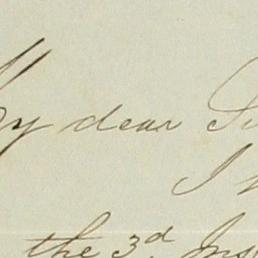 My dear Si
I
the 3d Ins